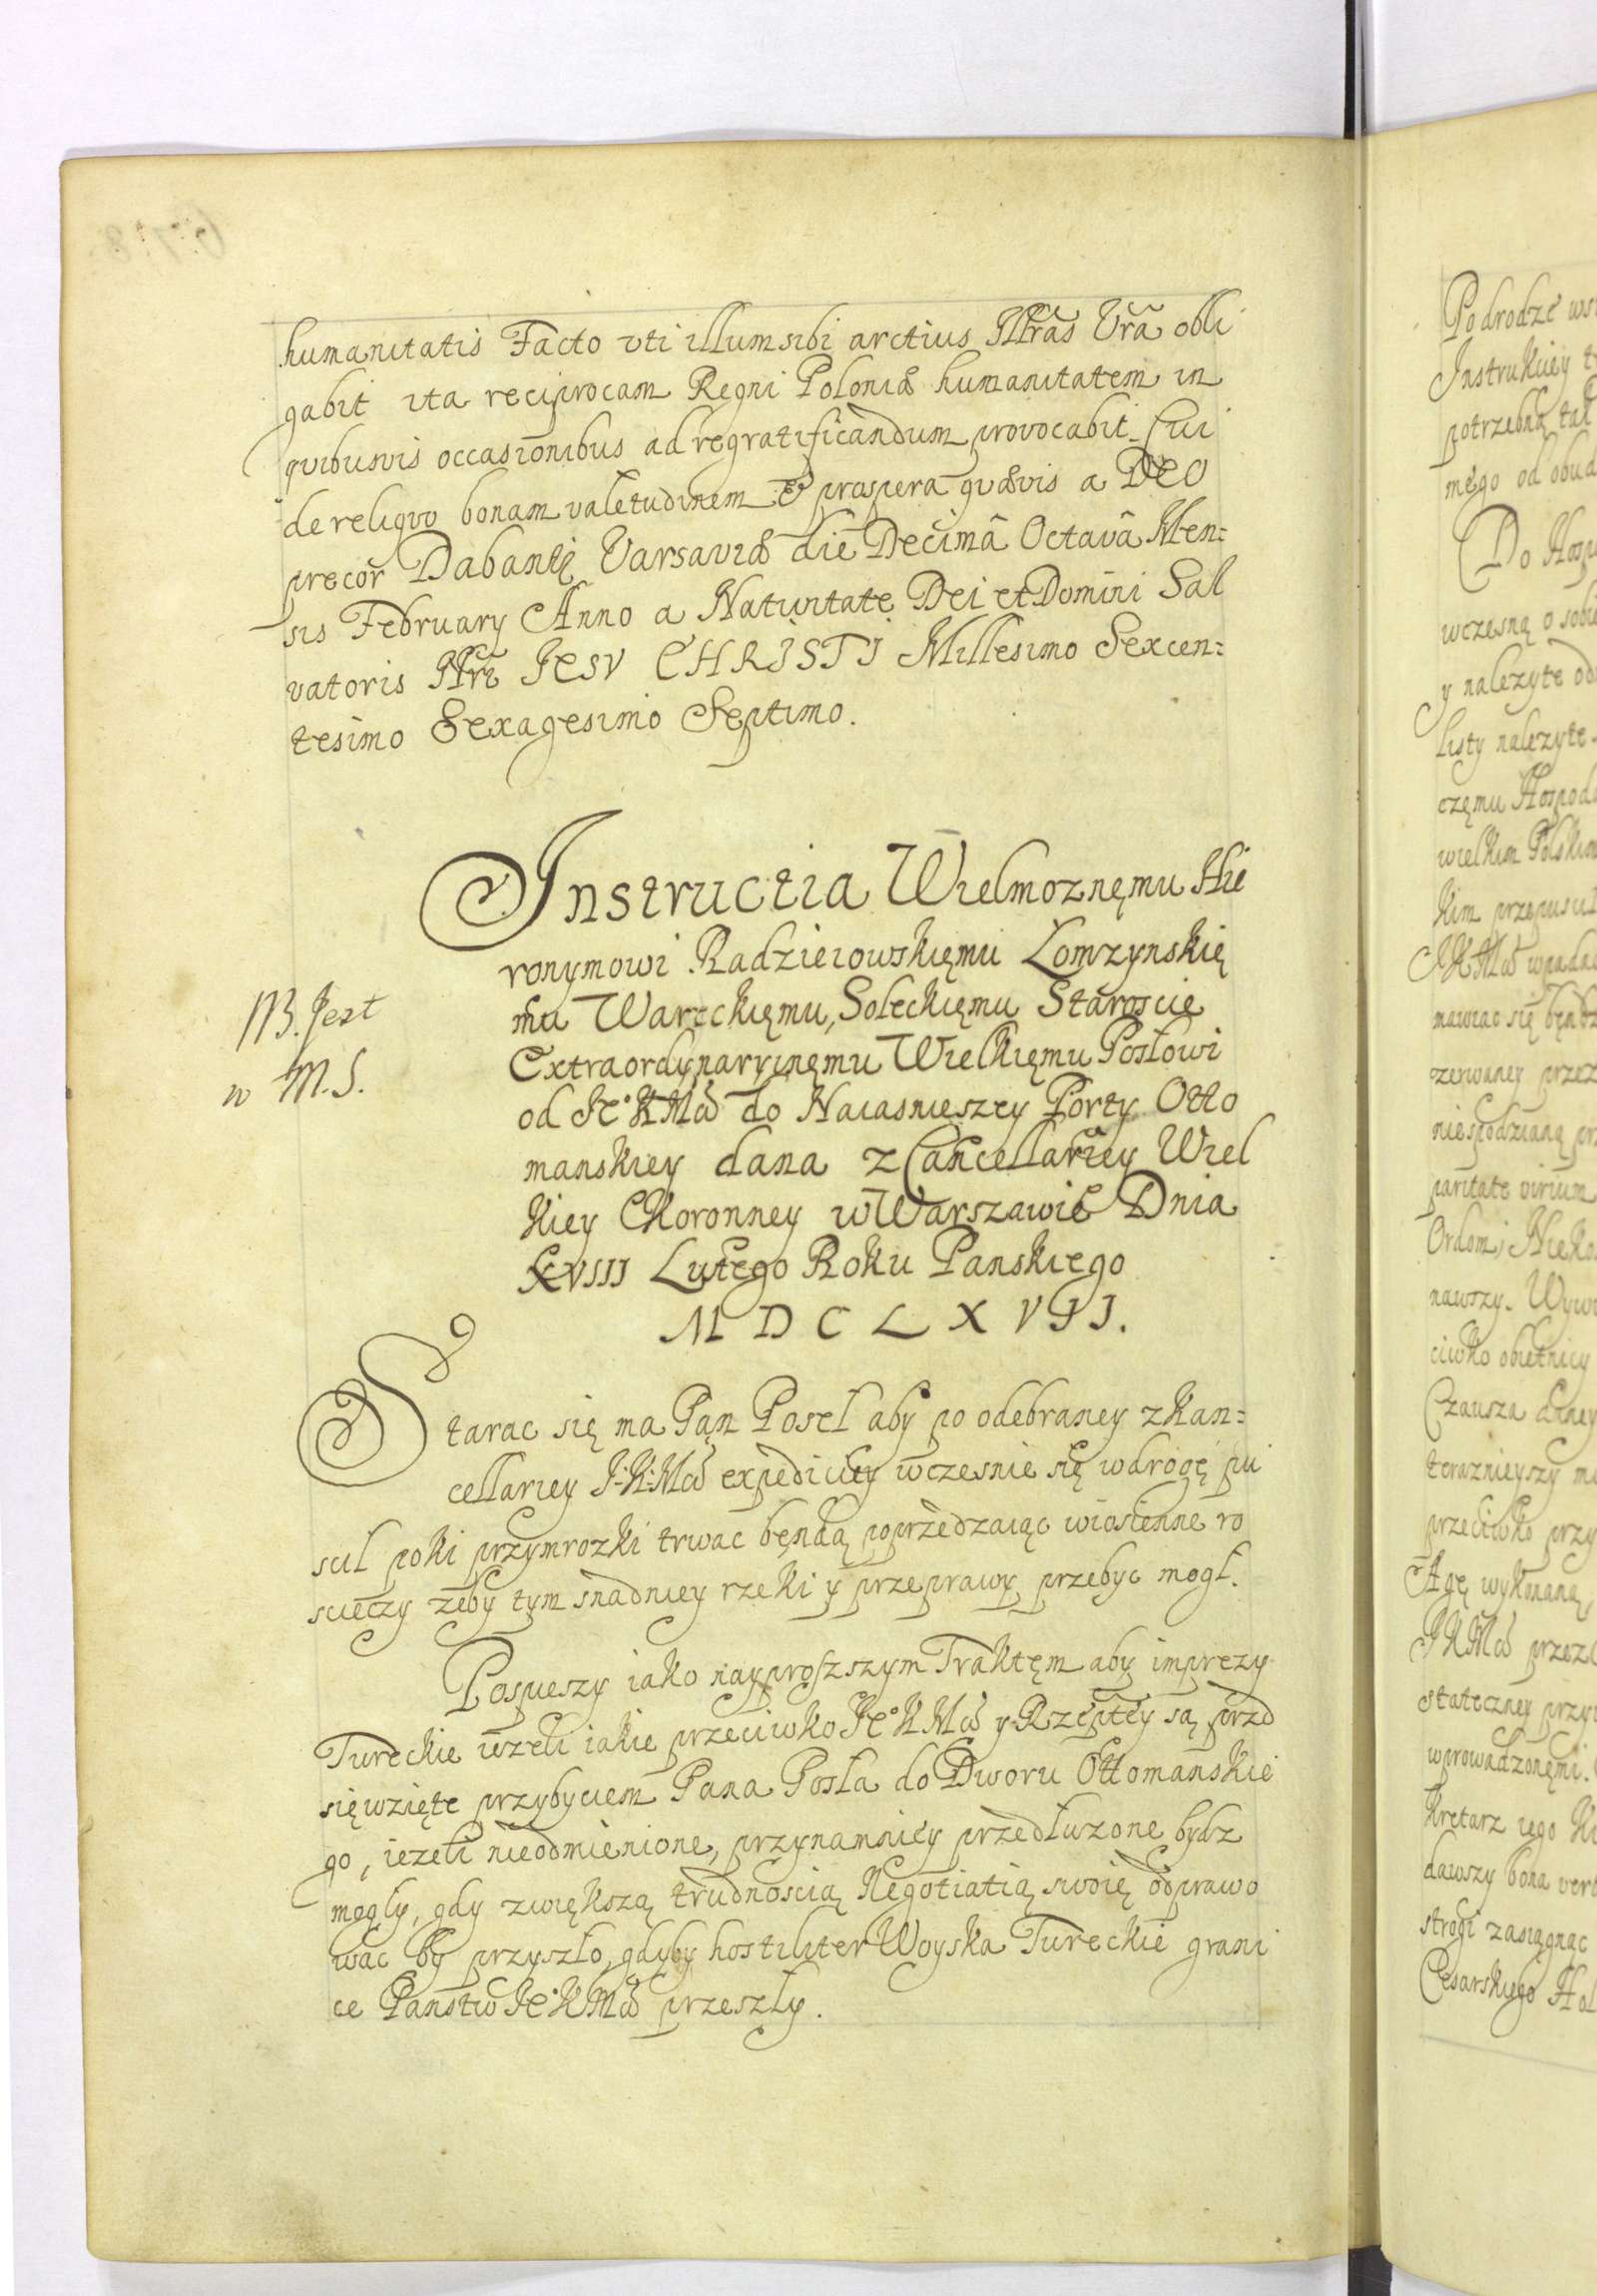 humanitatis Facto vti illum sibi arctius Illrãs Vrã obli
gabit ita reciprocam Regni Poloniæ humanitatem in
quibusvis occasionibus ad regratificandum provocabit. Cui
de reliqvo bonam valetudinem & prospera qvævis a DEO
precor Dabantj Varsaviæ die Decimâ Octavâ Men=
sis February Anno a Nativitate Dei et Domini Sal
vatoris Nrĩ JESV CHRISTI Millesimo Sexcen=
tesimo Sexagesimo Septimo.
Instructia Wielmoznęmu Hie
ronymowi Radzieiowskięmu Łomzynskię
mu Wareckięmu, Soleckięmu Staroscie
Extraordynaryinęmu Wielkięmu Posłowi
od Jeº KMći do Naiasnieszey Porty Otto
manskiey dana z Cancellariey Wiel
kiey Koronney w Warszawie Dnia
XVIII Lutego Roku Panskiego
MDCLXVII.
NB. Jest
w M.S.
Starac się ma Pąn Poseł aby po odebraney z Kan=
cellariey J:K:Mći expediciey wczesnie się w drogę pu
scił poki przymrozki trwac będą poprzedzaiąc wiosienne ro
scieczy zeby tym snadniey rzeki y przeprawy przebyc mogł.
Pospieszy iako nayproszszym Traktęm aby imprezy
Tureckie iezeli iakie przeciwko Jeº KMći y Rzeptey są przed
się wzięte przybyciem Pana Posła do Dworu Ottomanskie
go, iezeli nieodmienione, przynamniey przedłuzone bydz
mogły, gdy z większą trudnoscią Negotiatią swoię odprawo
wac by przyszło, gdyby hostiliter Woyska Tureckie grani
ce Panstw Jeº KMći przeszły.
Po drodze
Instrukciey
potrzebną
mego od
Do
wczesną o
y nalezyte
listy nalezyte
częmu
wielkim Polskim
kim
JKMći
mawiac się
zerwaney przez
niespodzianą
paritate virium
nawszy.
ciwko obietnicy
Czausza
terazniejszy
przeciwko
Agę wykonaną,
JKMći przez
stateczney
wprowadzonęmi.
kretarz iego
dawszy bona
strogi zasiągnąc
Cesarskiego